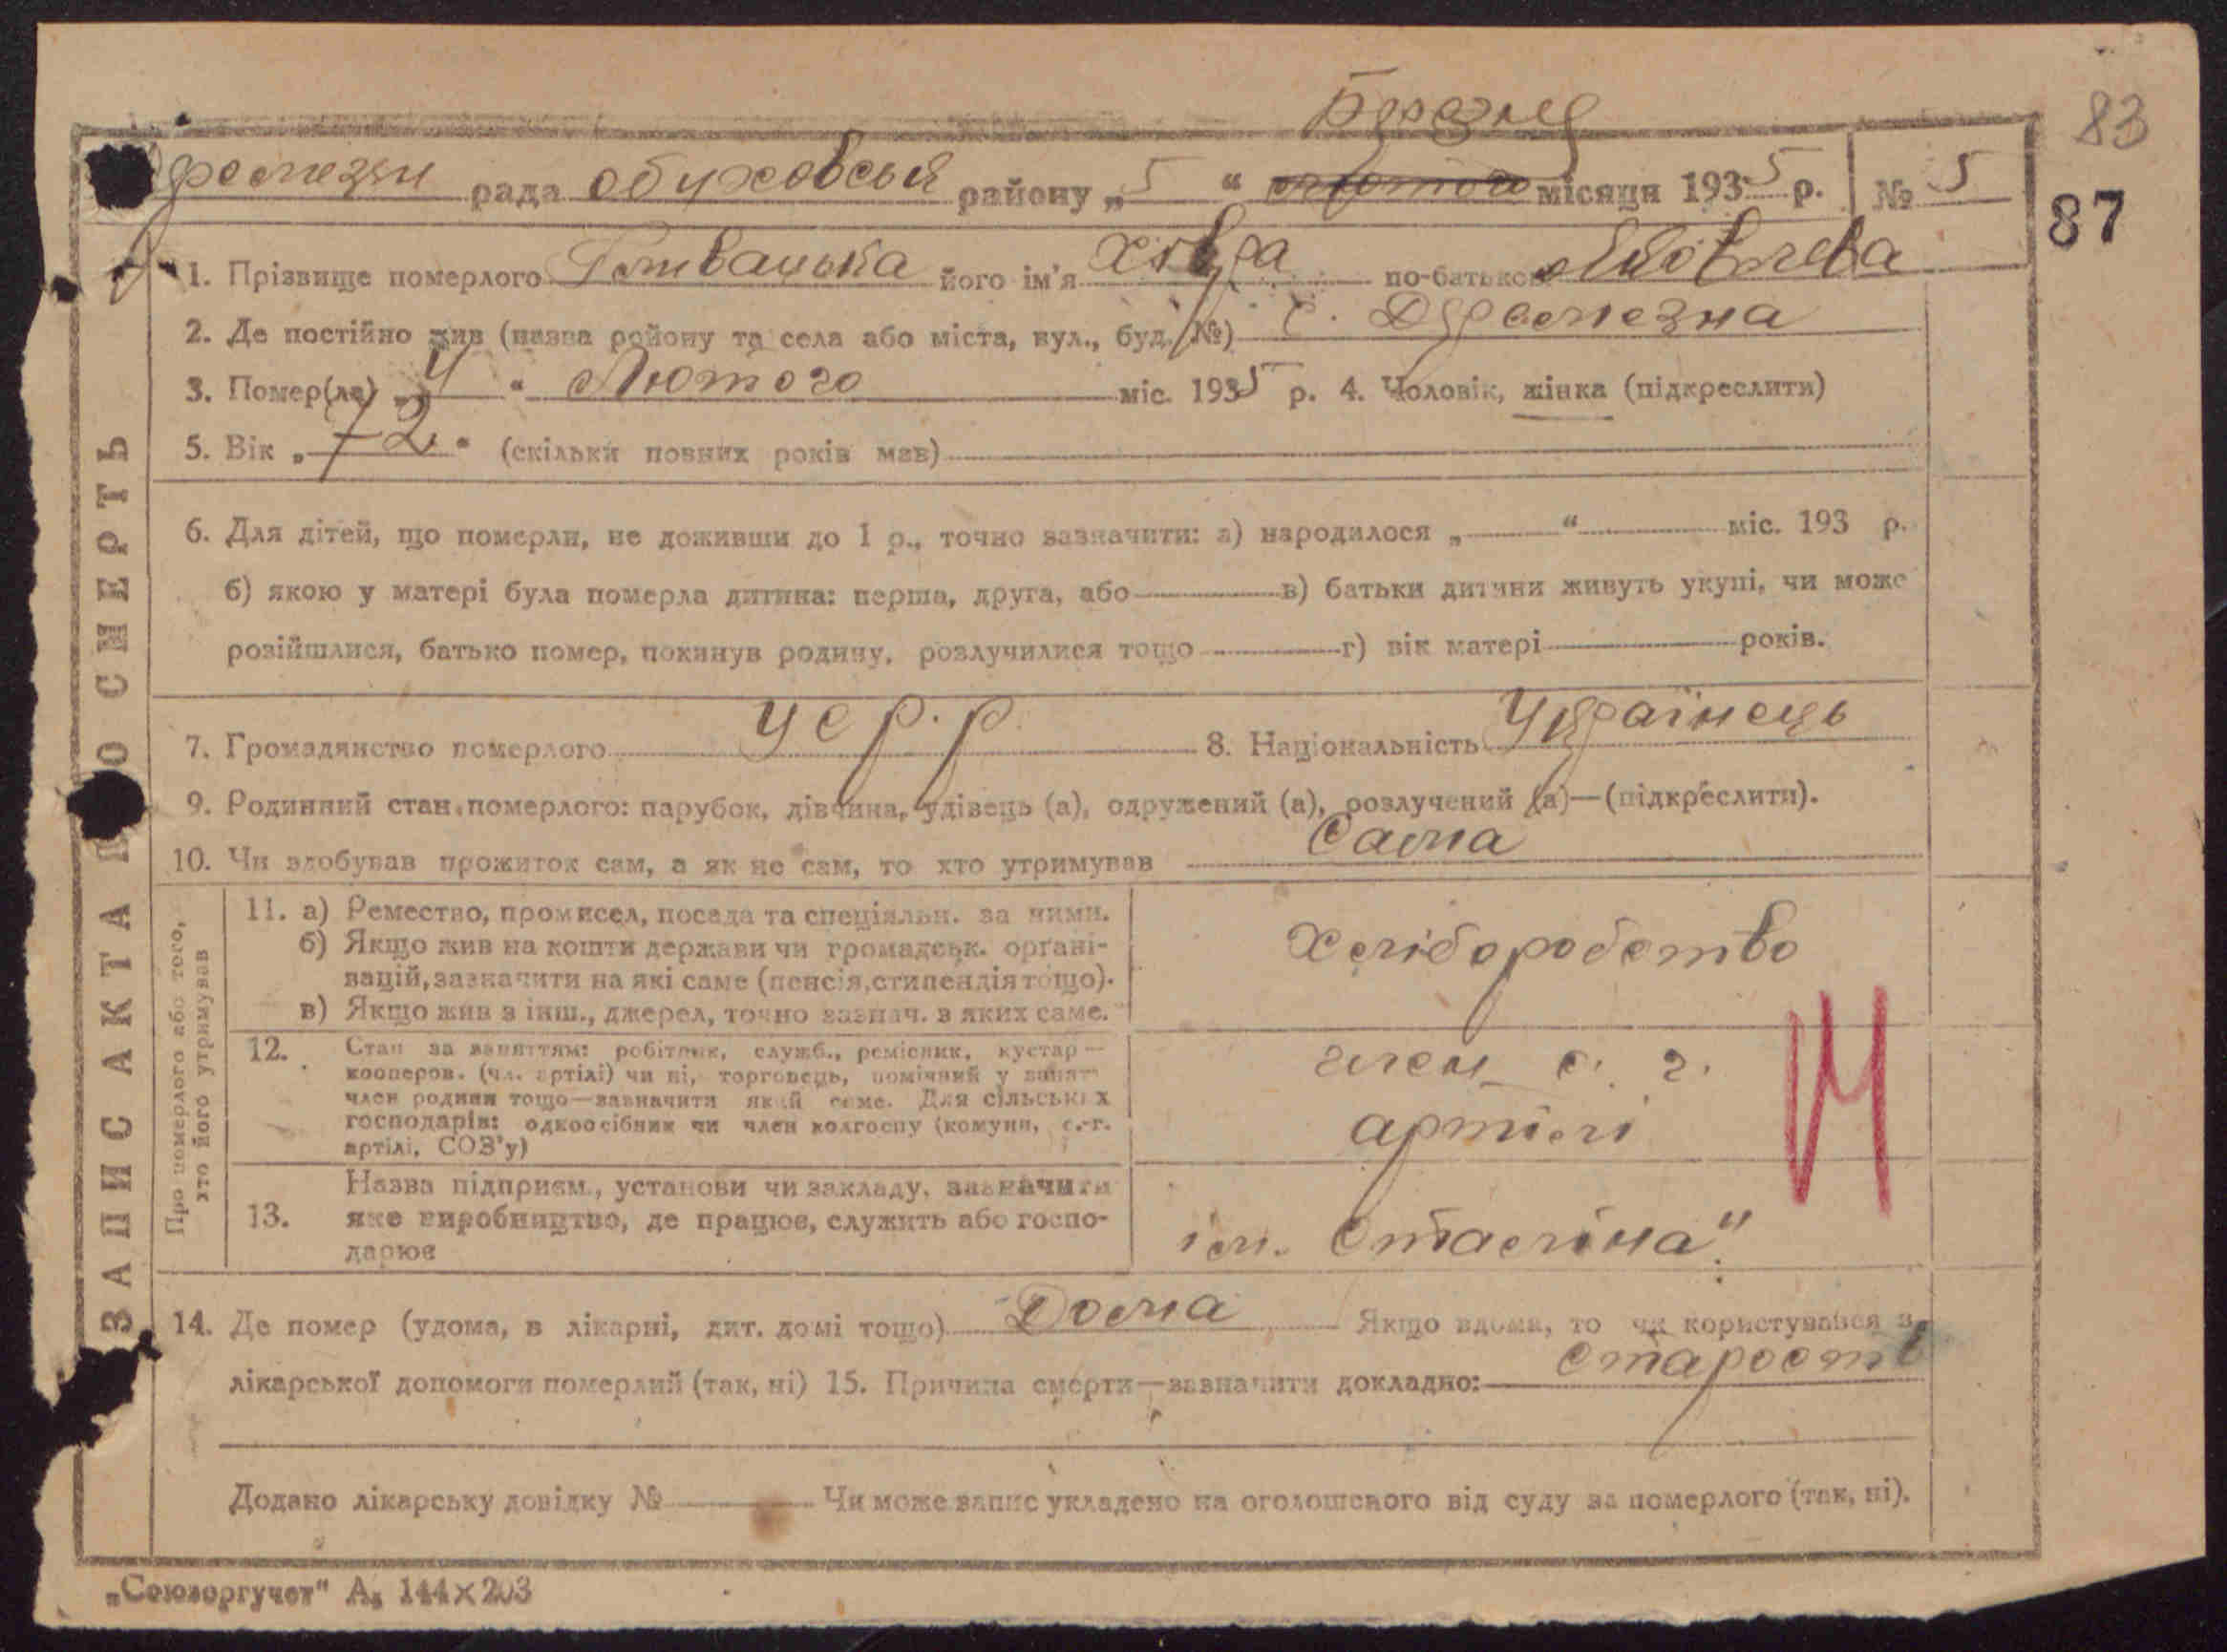 83
березня
рада обуховськй району „5“ лютого місяця 1935 р. № 5
87
1. Прізвище померлого його ім'я по-батькові Яковлева
2. Де постійно жив (назва району та села або міста, вул., буд. №) с.
3. Помер(ла) „4“ Лютого міс. 1935 р. 4. Чоловік, жінка (підкреслити)
5. Вік „72“ (скільки повних років мав)
6. Для дітей, що померли, не доживши до 1 р., точно зазначити: а) народилося „ “ міс. 193 р.
б) якою у матері була померла дитина: перша, друга, або в) батьки дитини живуть укупі, чи може
розійшлися, батько помер, покинув родину, розлучилися тощо г) вік матері років.
7. Громадянство померлого УСР.Р. 8. Національність Українець
9. Родинний стан померлого: парубок, дівчина, удівець (а), одружений (а), розлучений (а)—(підкреслити).
10. Чи здобував прожиток сам, а як не сам, то хто утримував Сама
Про померлого або того,
хто його утримував
11. а) Ремество, промисел, посада та спеціяльн. за ними.
б) Якщо жив на кошти держави чи громадськ. орґані-
зацій, зазначити на які саме (пенсія, стипендія тощо).
в) Якщо жив з інш., джерел, точно зазнач. в яких саме.
Хліборобство
12. Стан за заняттям: робітник, служб., ремісник, кустар—
кооперов. (чл. артілі) чи ні, торговець, помічний у занят.
член родини тощо—зазначити який саме. Для сільських
господарів: одноосібник чи член колгоспу (комуни, с.-г.
артілі, СОЗ'у)
член с. г.
артілі
13. Назва підприєм., установи чи закладу, зазначити
яке виробництво, де працює, служить або госпо-
дарює
ім. Сталіна"
14. Де помер (удома, в лікарні, дит. домі тощо) Дома Якщо вдома, то чи користувався з
лікарської допомоги померлий (так, ні) 15. Причина смерти—зазначити докладно: старость
Додано лікарську довідку № Чи може запис укладено на оголошеного від суду за померлого (так, ні).
ЗАПИС АКТА ПРО СМЕРТЬ
„Союзоргучет" А₅ 144×203